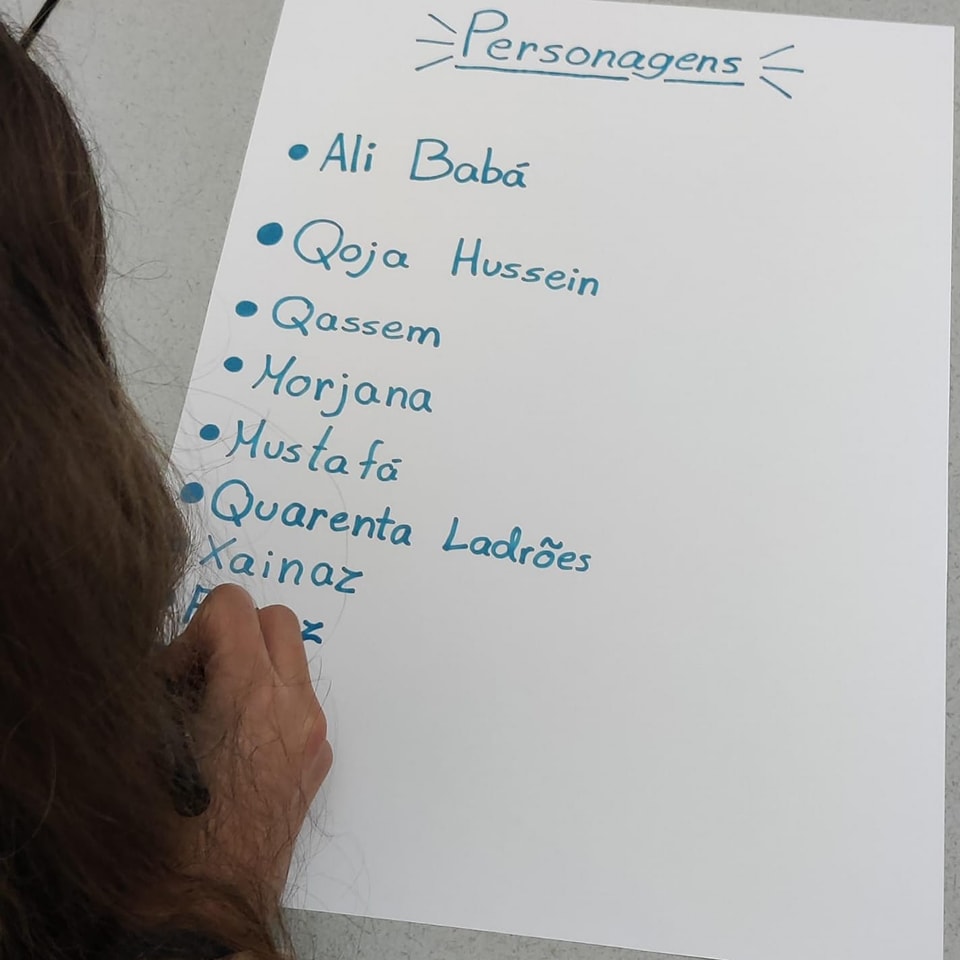 Personagens
• Ali Babá
• Qoja Hussein
• Qassem
• Morjana
• Mustafá
• Quarenta Ladrões
Xainaz